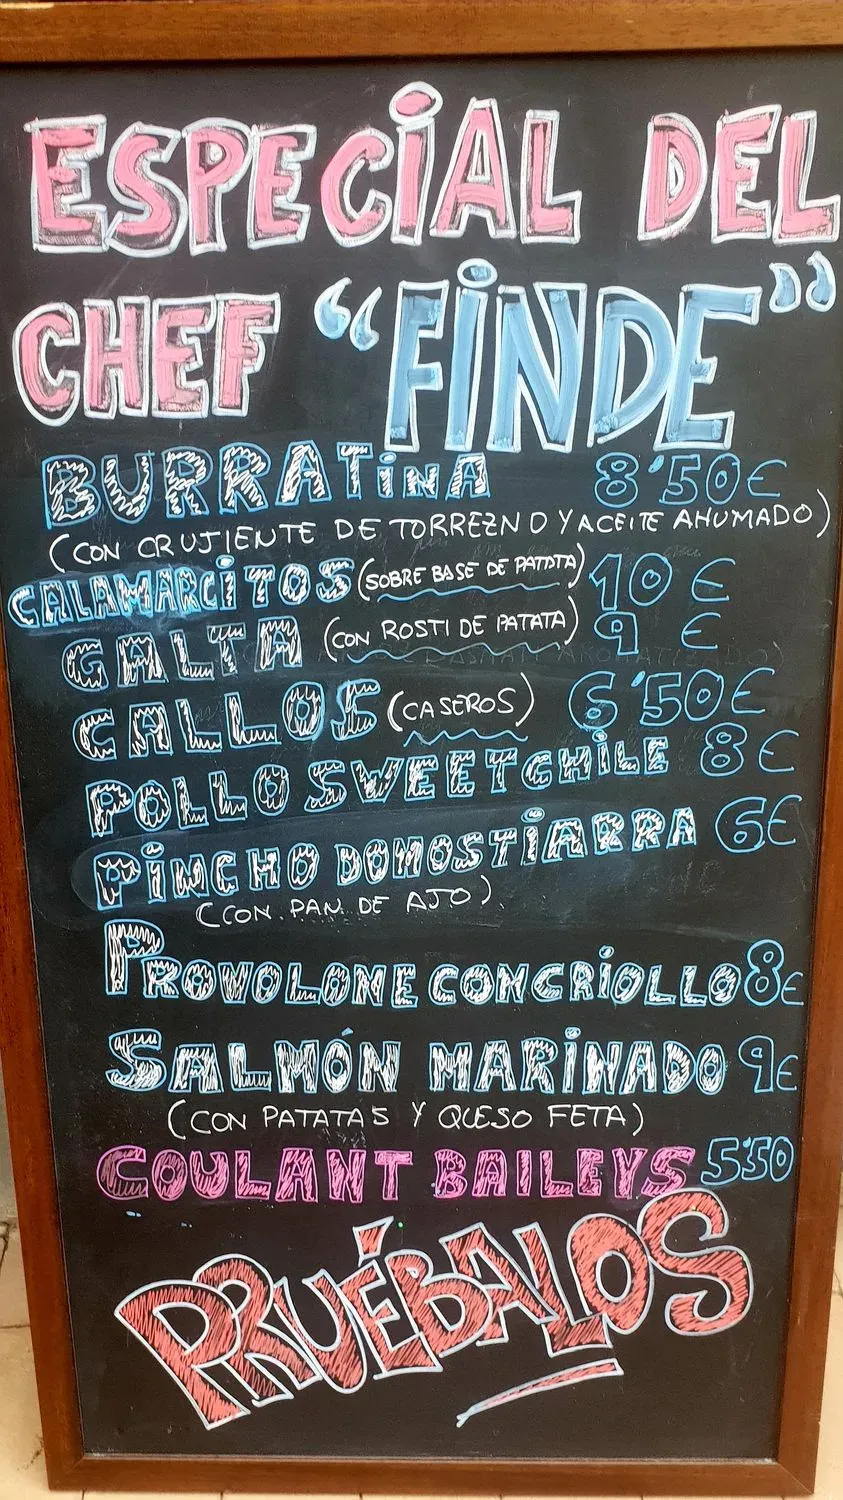 ESPECIAL DEL
CHEF "FINDE"
BURRATINA 8'50€
(CON CRUJIENTE DE TORREZNO Y ACEITE AHUMADO)
CALAMARCITOS (SOBRE BASE DE PATATA) 10 €
GALTA (CON ROSTI DE PATATA) 9 €
CALLOS (CASEROS) 6'50€
POLLO SWEETCHILE 8€
PINCHO DONOSTIARRA 6€
(CON PAN DE AJO)
PROVOLONE CON CRIOLLO 8€
SALMÓN MARINADO 9€
(CON PATATAS Y QUESO FETA)
COULANT BAILEYS 5'50
PRUÉBALOS